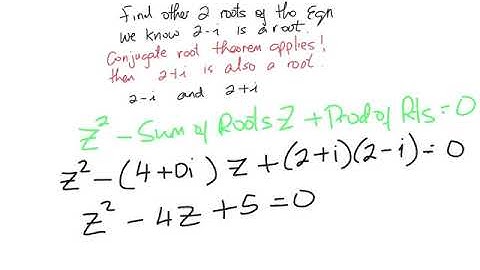 find other 2 roots of the Eqn
we know 2-i is a root.
Conjugate root theorem applies!
then 2+i is also a root.
2-i and 2+i
z² - Sum of Roots z + Prod of Rts = 0
z² - (4+0i) z + (2+i)(2-i) = 0
z² - 4z + 5 = 0